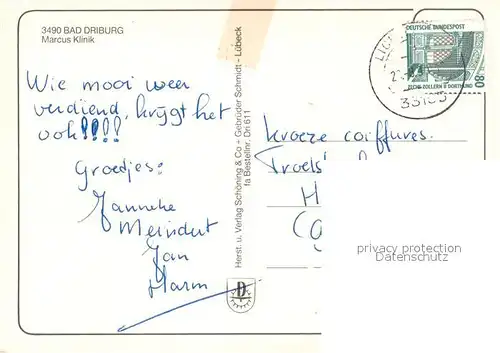 3490 BAD DRIBURG
Marcus Klinik
Wie mooi weer
verdiend, krygt het
ook!!!!
Groetjes:
Janneke
Meindert
Jan
Harm
Herst. u. Verlag Schöning & Co + Gebrüder Schmidt - Lübeck
fa Bestellnr. Dri 611
DEUTSCHE BUNDESPOST
80
ZECHE ZOLLERN II DORTMUND
kroeze coiffures.
H
privacy protection
Datenschutz